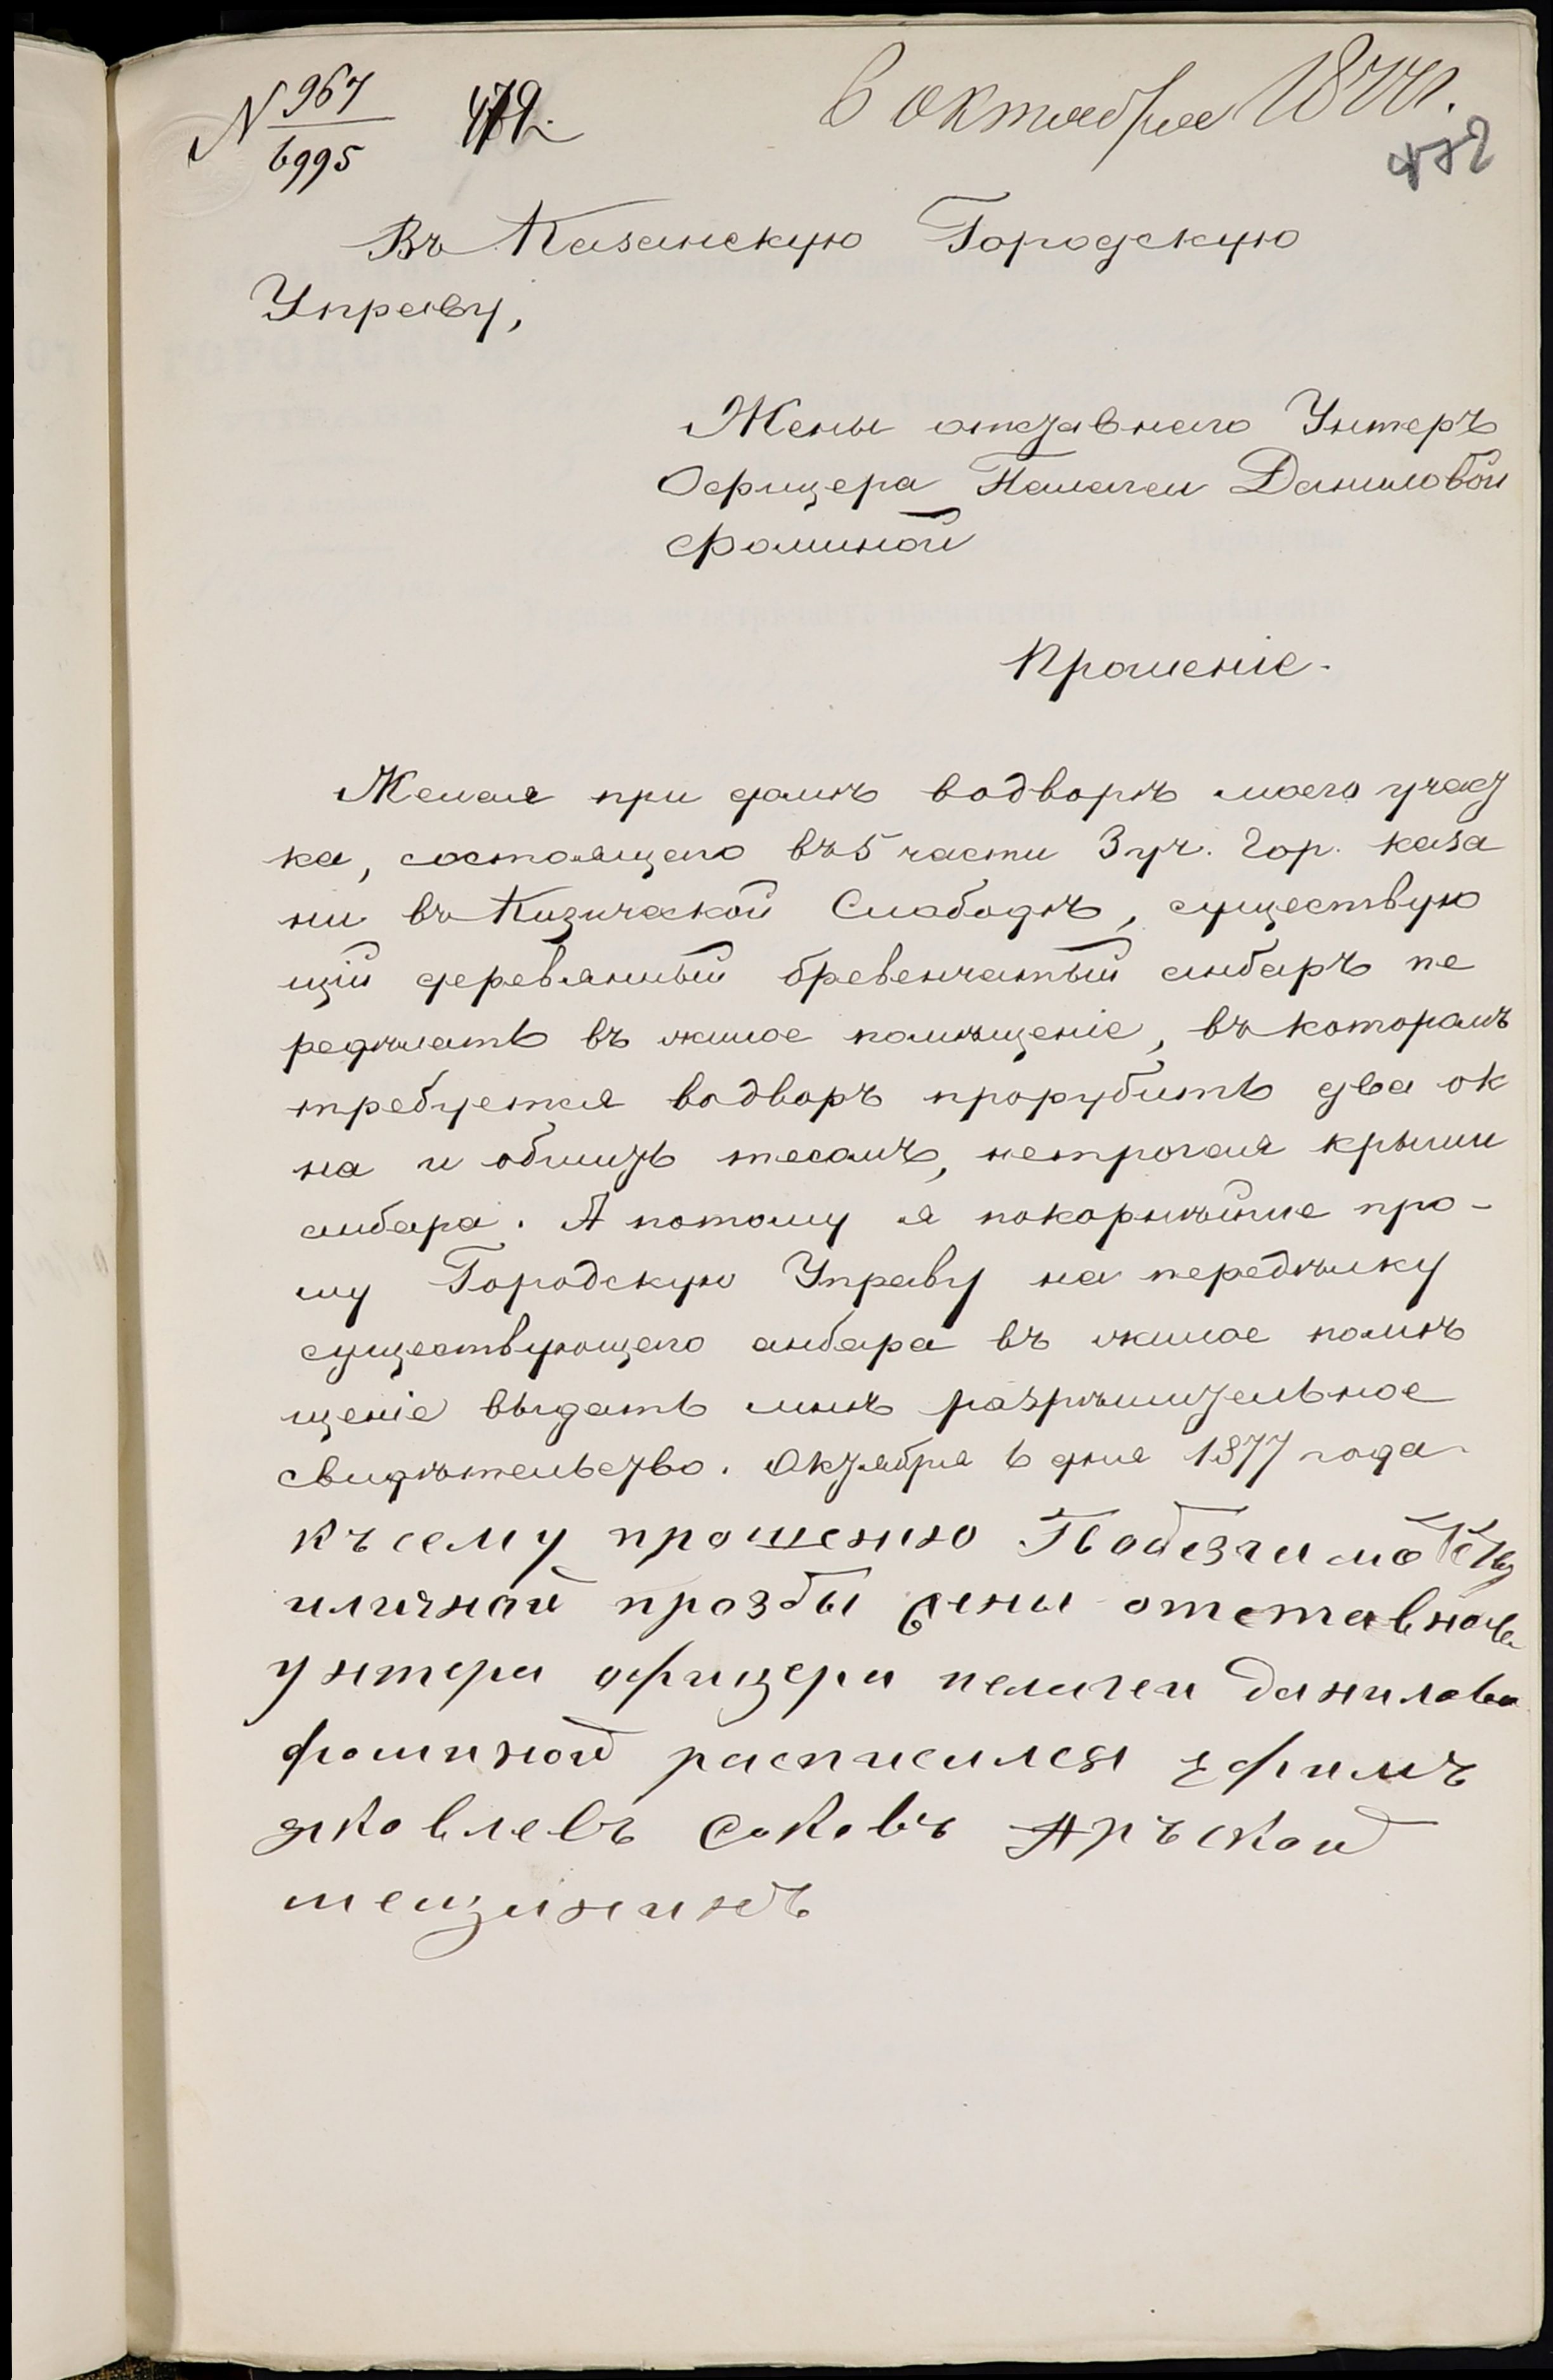 № 967
6995
479.
6 октября 1877.
472
Въ Казанскую Городскую
Управу,
Жены отставнаго Унтеръ
Офицера Пелагеи Даниловой
Фоминой
Прошеніе.
Желая при домѣ водворѣ моего участ
ка, состоящаго въ 5 части 3 уч. гор. каза
ни въ Кизической Слободѣ, существую
щій деревянный бревенчатый анбаръ пе
редѣлать въ жилое помѣщеніе, въ которомъ
требуется водворъ прорубить два ок
на и обшить тесомъ, нетрогая крыши
анбара. А потому я покорнѣйше про-
шу Городскую Управу на передѣлку
существующаго анбара въ жилое помѣ
щеніе выдать мнѣ разрѣшительное
свидѣтельство. Октября 6 дня 1877 года
къ сему прошению По безгрмоте Ея
иличнай прозбы жены отставнова
унтера офицера пелагеи данилова
фоминой расписался ефимъ
яковлевъ соковъ Аръской
мещининъ